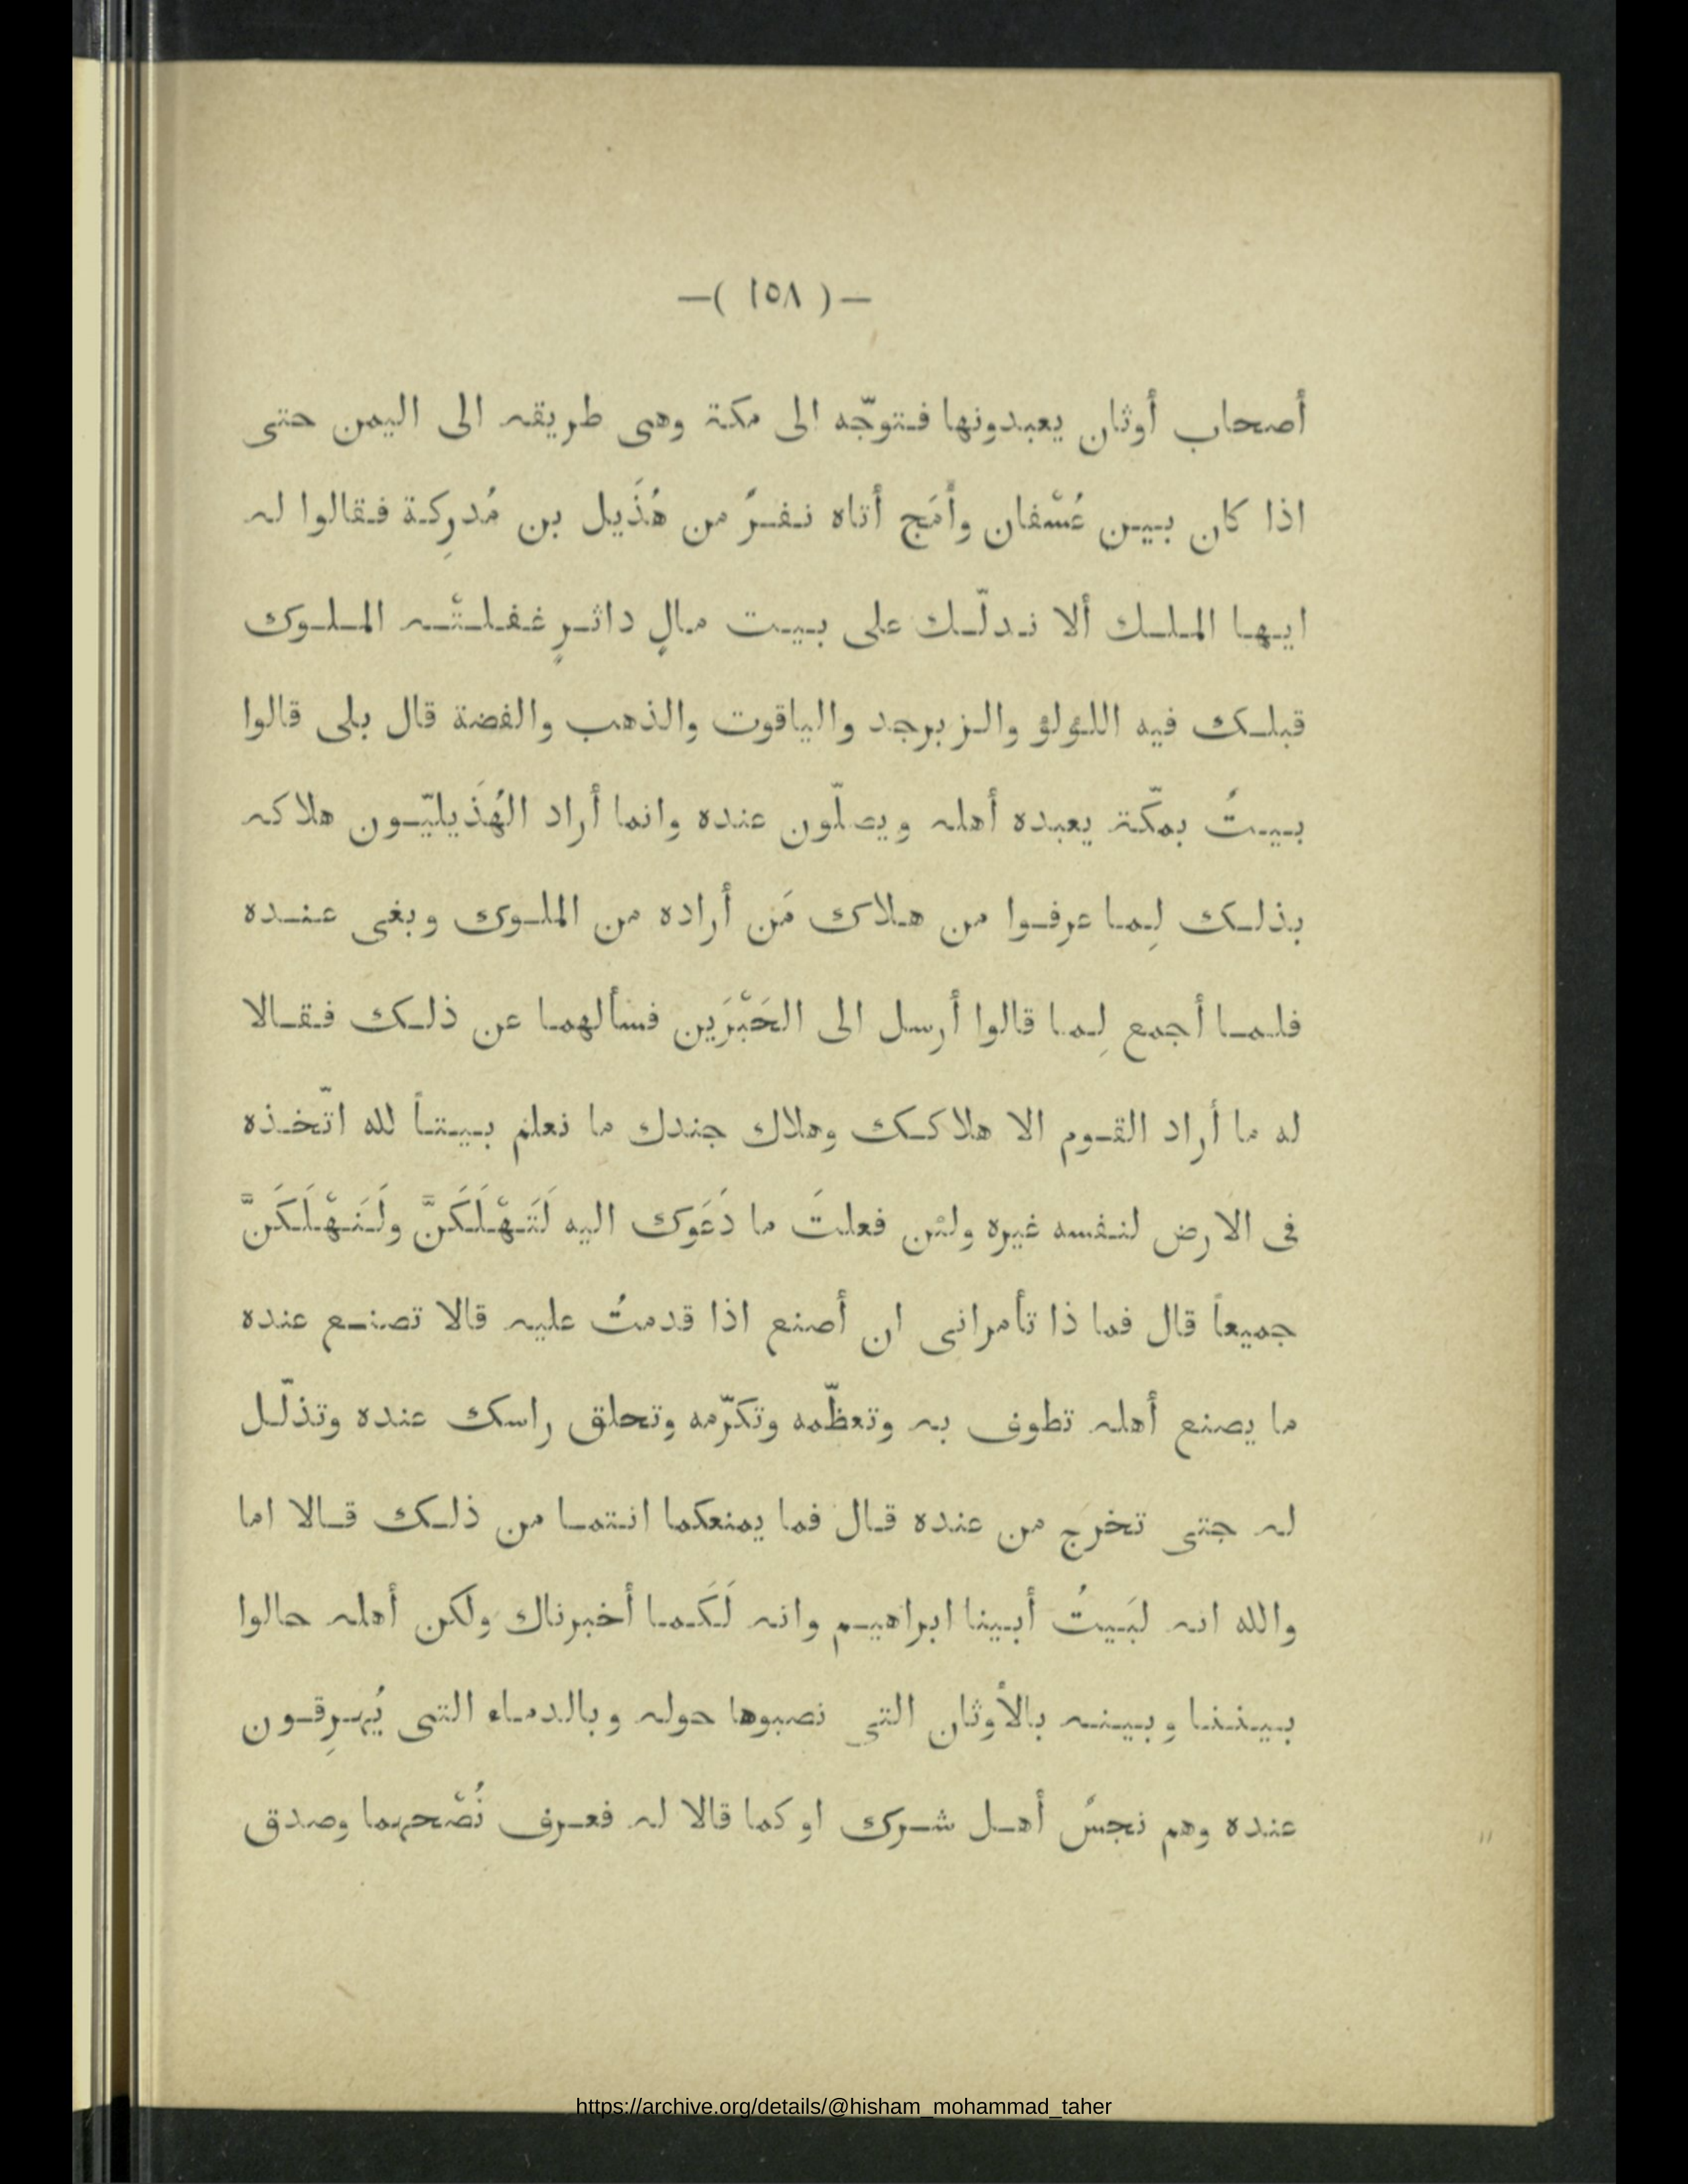 —( ١٥٨ )—
أصحاب أوثان يعبدونها فتوجّه الى مكة وهى طريقه الى اليمن حتى
اذا كان بين عُسْفان وأَمَج أتاه نفرٌ من هُذَيل بن مُدرِكة فقالوا له
ايها الملك ألا ندلّك على بيت مالٍ داثرٍ غفلتْه الملوك
قبلك فيه اللؤلؤ والزبرجد والياقوت والذهب والفضة قال بلى قالوا
بيتٌ بمكّة يعبده أهله ويصلّون عنده وانما أراد الهُذَيليّون هلاكه
بذلك لِما عرفوا من هلاك مَن أراده من الملوك وبغى عنده
فلما أجمع لِما قالوا أرسل الى الحَبْرَين فسألهما عن ذلك فقالا
له ما أراد القوم الا هلاكك وهلاك جندك ما نعلم بيتاً لله اتّخذه
فى الارض لنفسه غيره ولئن فعلتَ ما دَعَوك اليه لَتَهْلَكَنَّ ولَنَهْلَكَنَّ
جميعاً قال فما ذا تأمرانى ان أصنع اذا قدمتُ عليه قالا تصنع عنده
ما يصنع أهله تطوف به وتعظّمه وتكرّمه وتحلق راسك عنده وتذلّل
له جتى تخرج من عنده قال فما يمنعكما انتما من ذلك قالا اما
والله انه لبَيتُ أبينا ابراهيم وانه لَكَما أخبرناك ولكن أهله حالوا
بيننا وبينه بالأوثان التى نصبوها حوله وبالدماء التى يُهرِقون
عنده وهم نجسٌ أهل شرك او كما قالا له فعرف نُصْحهما وصدق
https://archive.org/details/@hisham_mohammad_taher